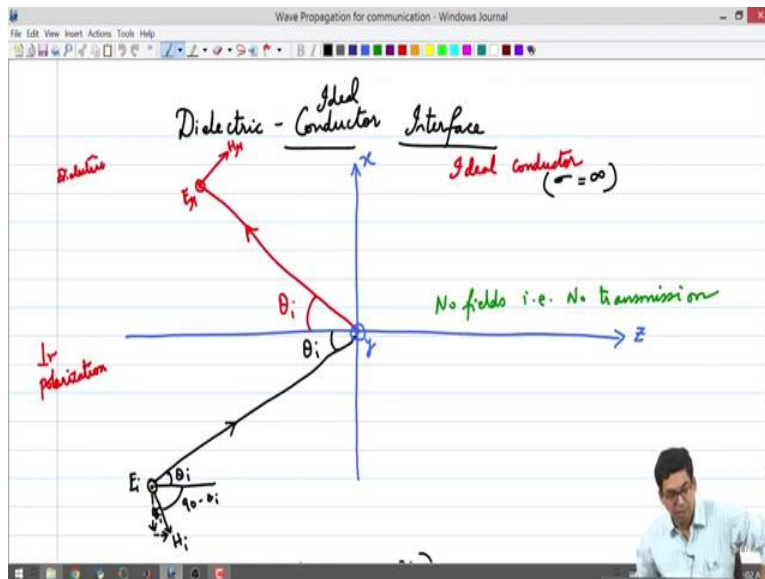 Wave Propagation for communication - Windows Journal
File Edit View Insert Actions Tools Help
Dielectric - Ideal Conductor Interface
Dielectric
Hr
x
Ideal conductor
(σ = ∞)
Er
θi
No fields i.e. No transmission
θi
y
z
⊥r
polarization
Ei
θi
90-θi
θi
Hi